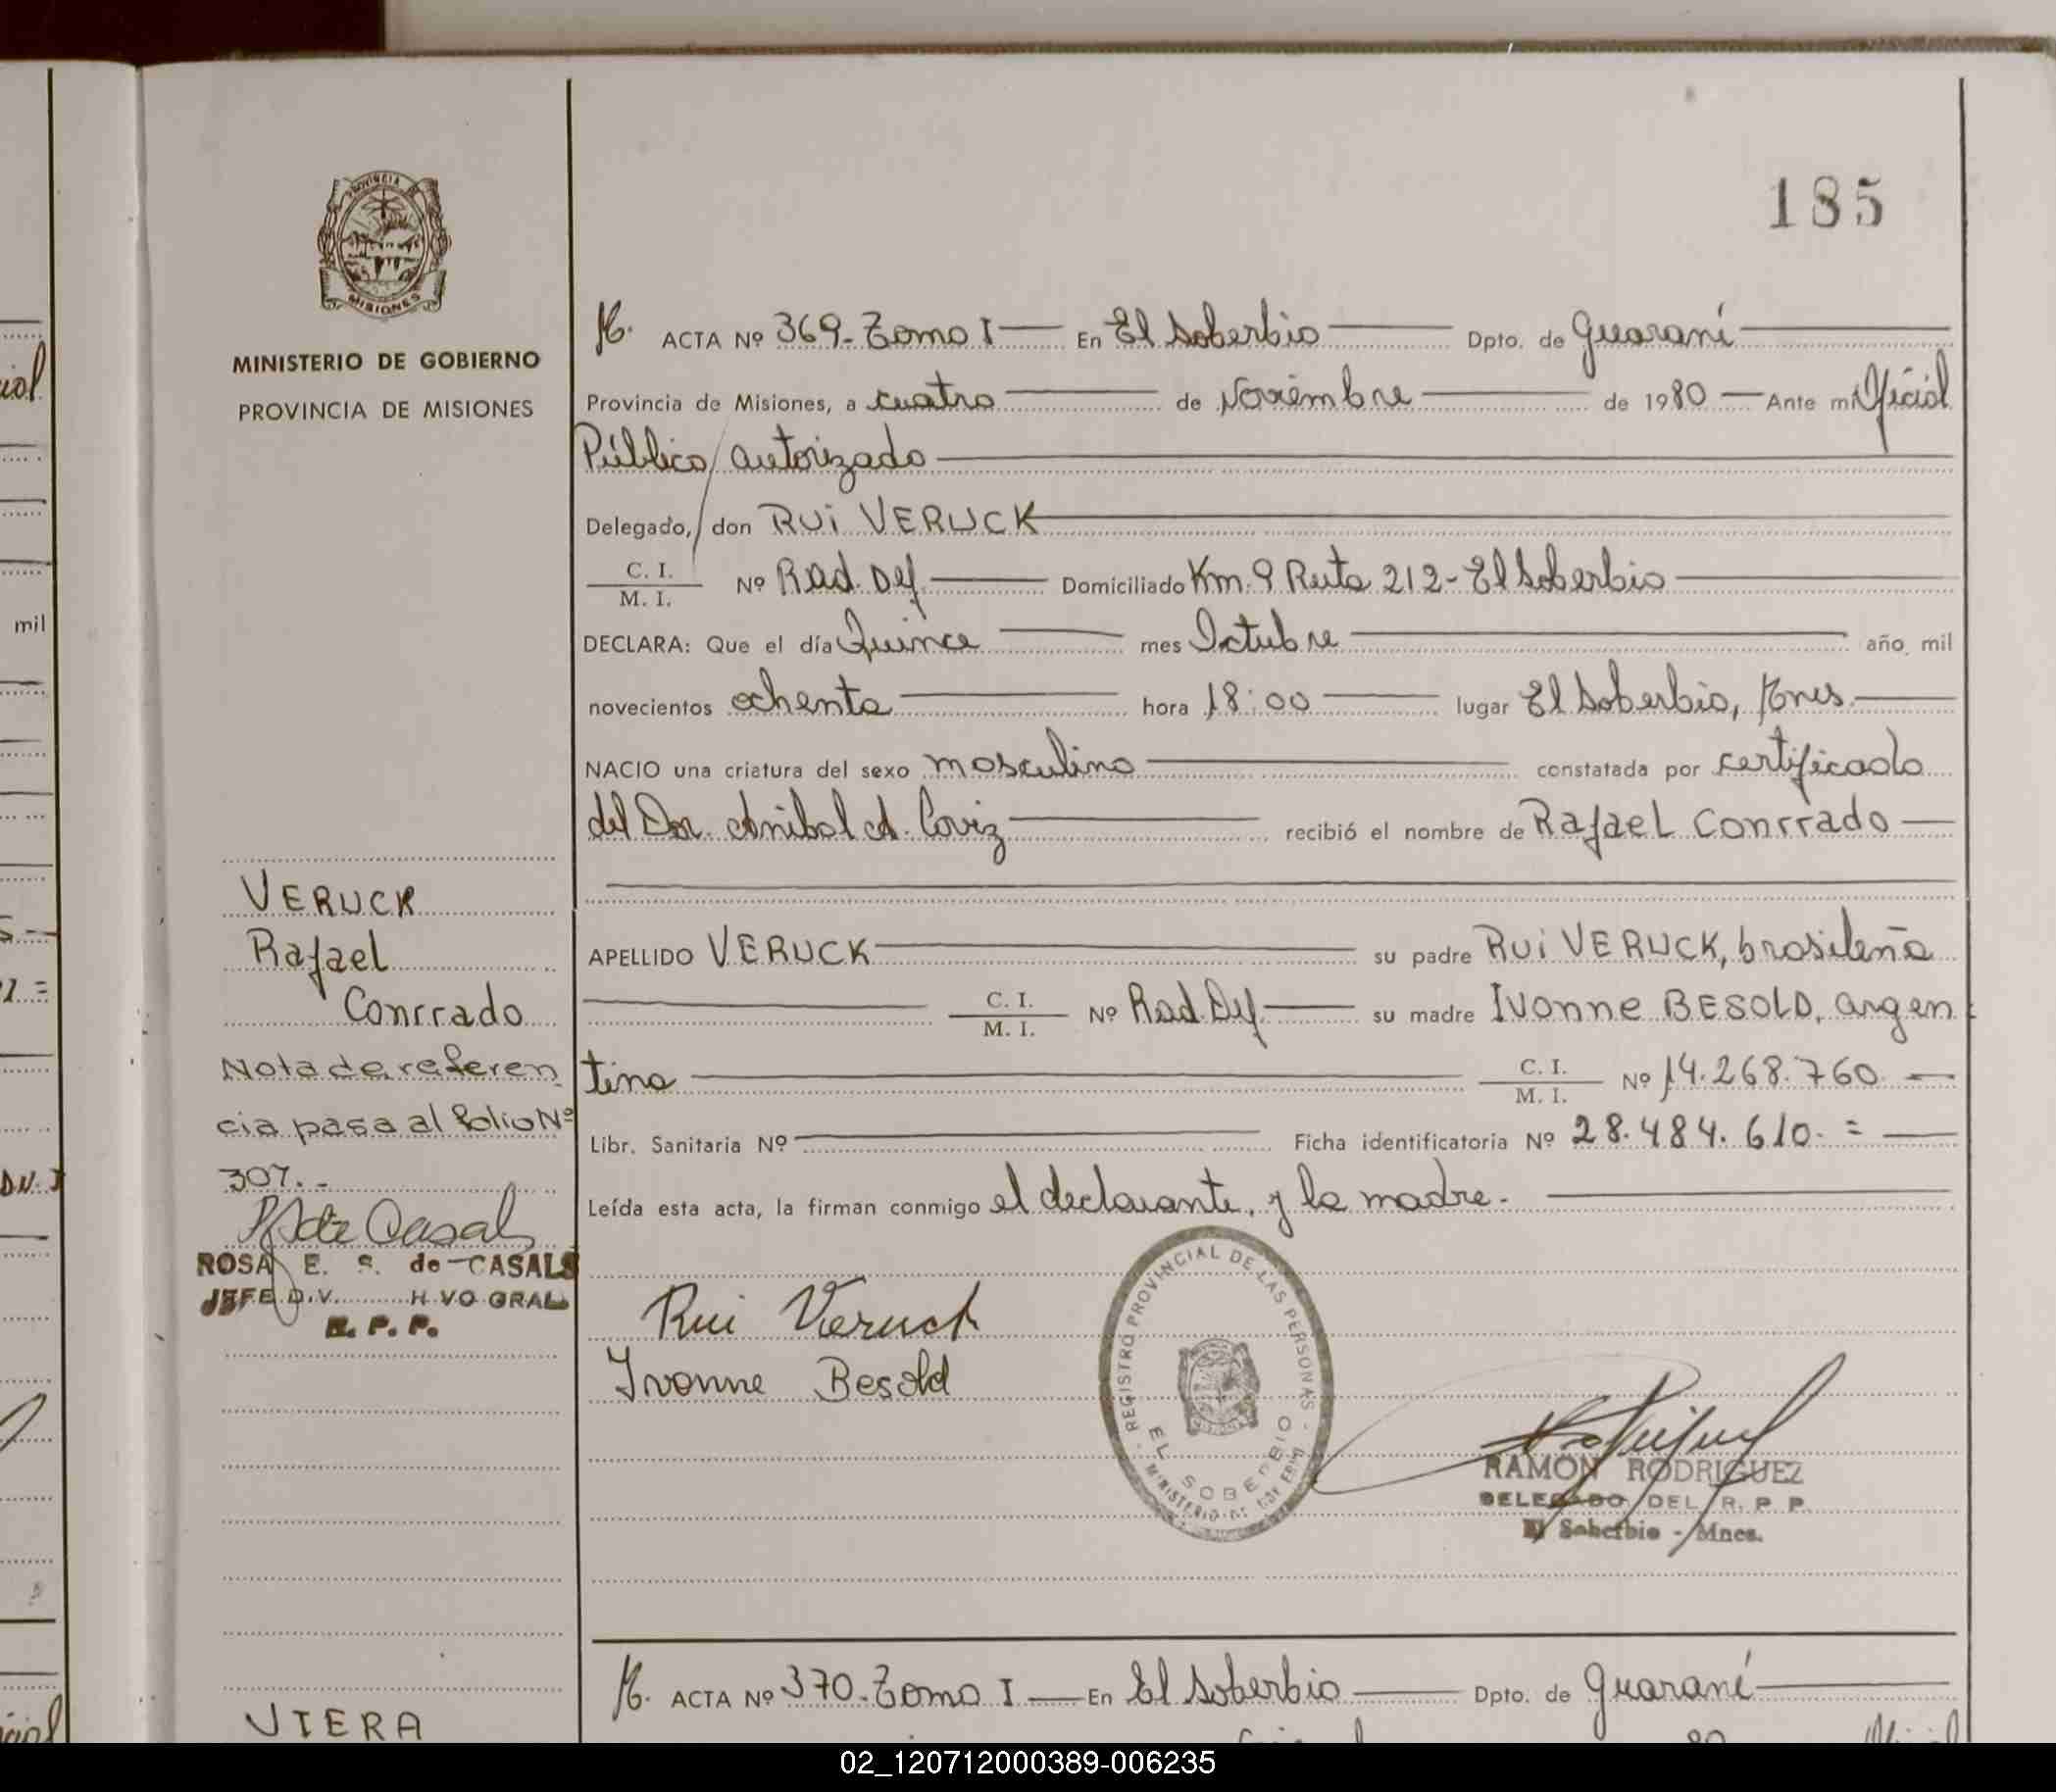 185
PROVINCIA DE
MISIONES
MINISTERIO DE GOBIERNO
PROVINCIA DE MISIONES
M. ACTA Nº 369-Tomo I En El Soberbio Dpto. de Guaraní
Provincia de Misiones, a cuatro de Noviembre de 1980 Ante mi Oficial
Público autorizado
Delegado, don Rui VERUCK
C. I.
M. I.
Nº Rad. Def. Domiciliado Km. 9 Ruta 212-El Soberbio
DECLARA: Que el día Quince mes Octubre año mil
novecientos ochenta hora 18:00 lugar El Soberbio, Mnes.
NACIO una criatura del sexo masculino constatada por certificado
del Dr. Anibal A. Coviz recibió el nombre de Rafael Conrrado
APELLIDO VERUCK su padre Rui VERUCK, brasileña
C. I.
M. I.
Nº Rad. Def. su madre Ivonne BESOLD, argen
tina
C. I.
M. I.
Nº 14.268.760
Libr. Sanitaria Nº Ficha identificatoria Nº 28.484.610. =
Leída esta acta, la firman conmigo el declarante, y la madre.
Rui Veruck
Ivonne Besold
REGISTRO PROVINCIAL DE LAS PERSONAS
EL SOBERBIO
RAMON RODRIGUEZ
DELEGADO DEL R. P. P.
El Soberbio - Mnes.
VERUCK
Rafael
Conrrado
Nota de referen
cia pasa al folio Nº
307.-
ROSA E. S. de CASALS
JEFE DIV. GRAL
R. P. P.
M. ACTA Nº 370-Tomo I En El Soberbio Dpto. de Guaraní
VIERA
mil
02_120712000389-006235